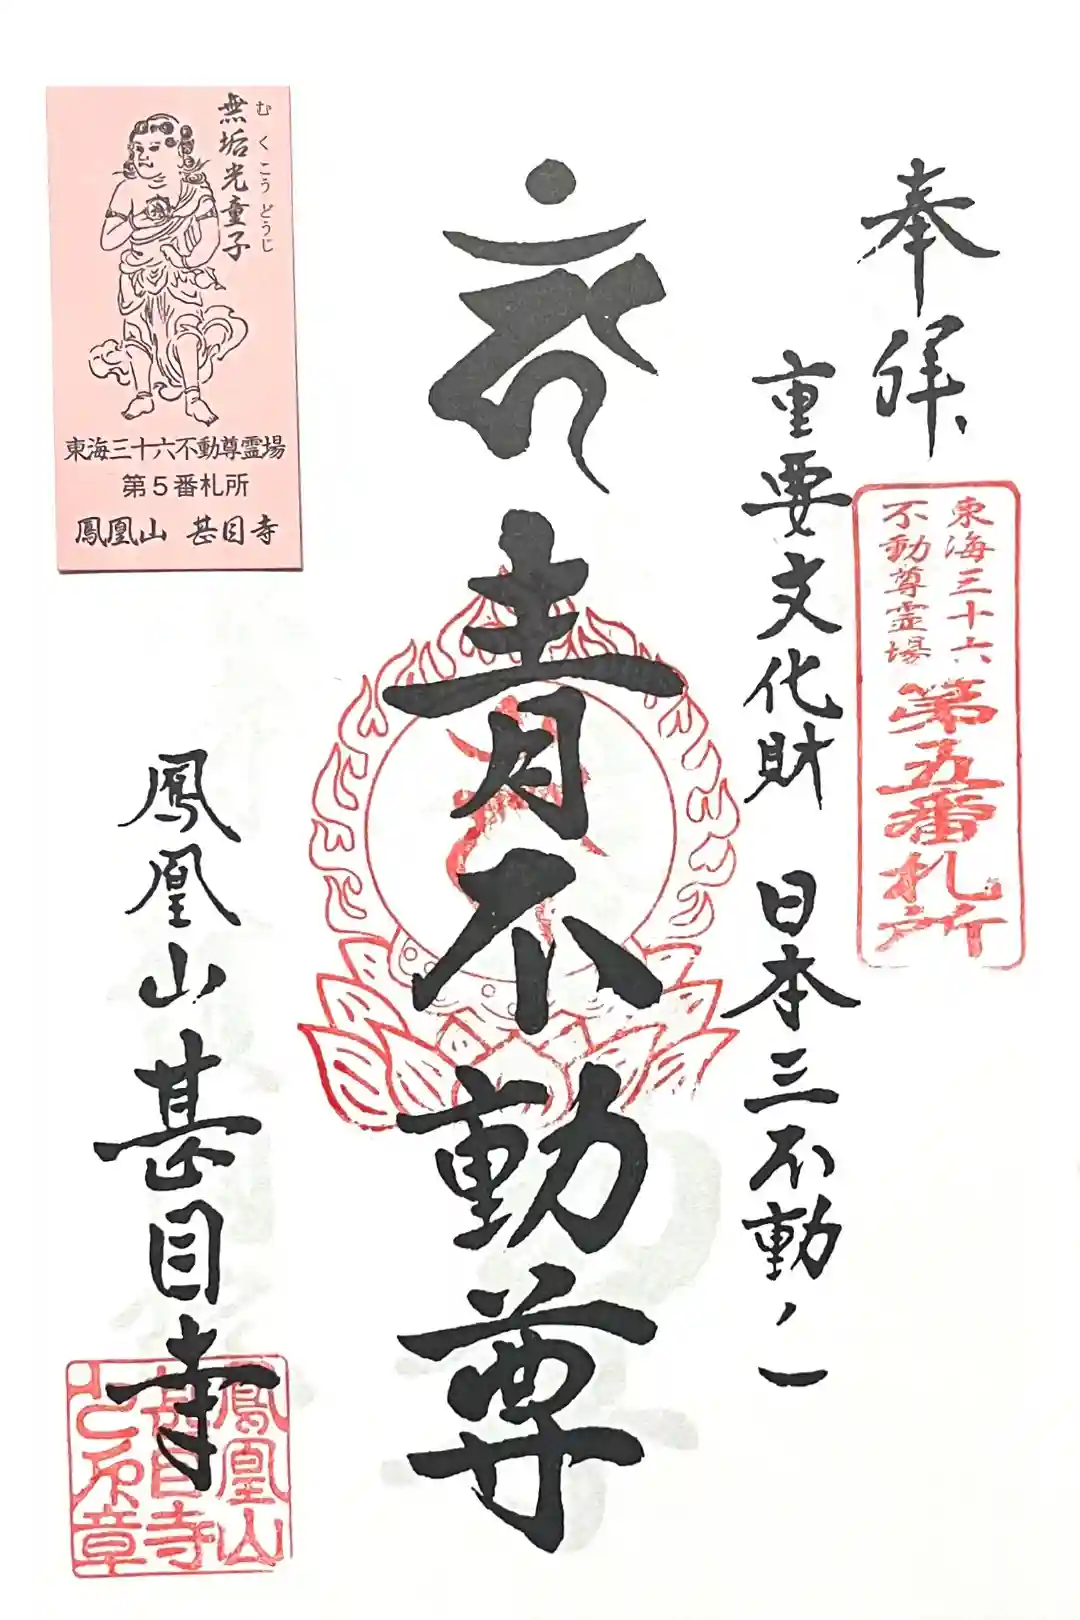 奉拝
東海三十六
不動尊霊場
第五番札所
重要文化財 日本三不動ノ一
青不動尊
鳳凰山甚目寺
鳳凰山
甚目寺
無垢光童子
むくこうどうじ
東海三十六不動尊霊場
第5番札所
鳳凰山 甚目寺